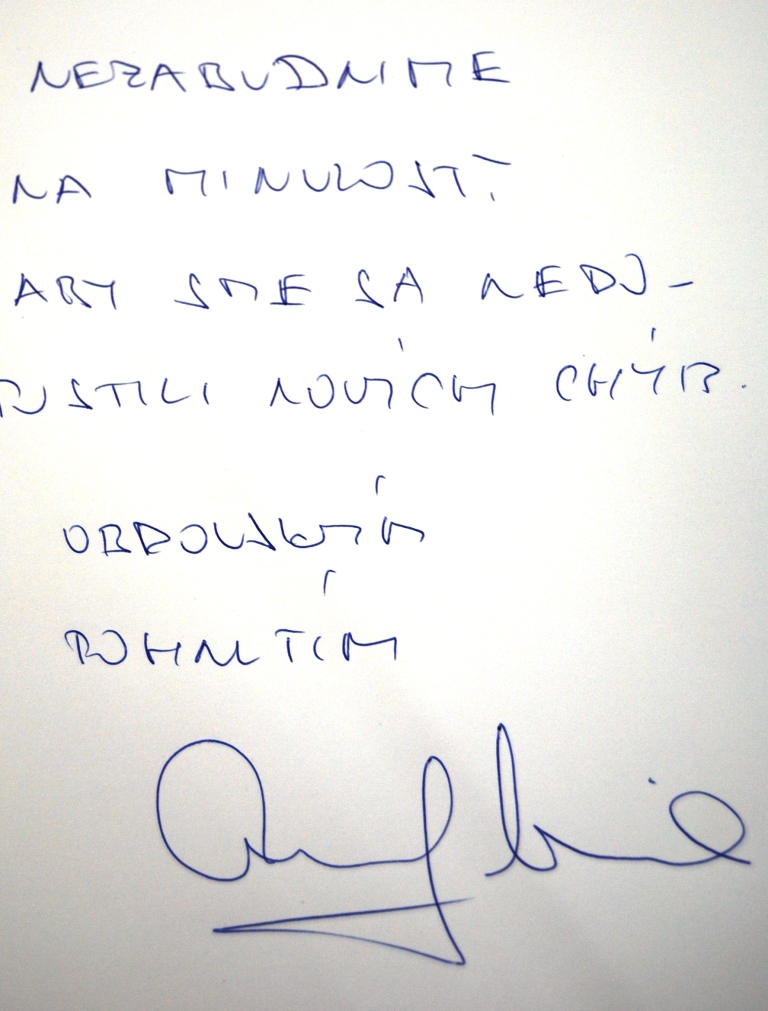 NEZABUDNIME
NA MINULOSŤ
ABY SME SA NEDO-
PUSTILI NOVÝCH CHÝB.
OBDOVUHOD
POHNUTÍM